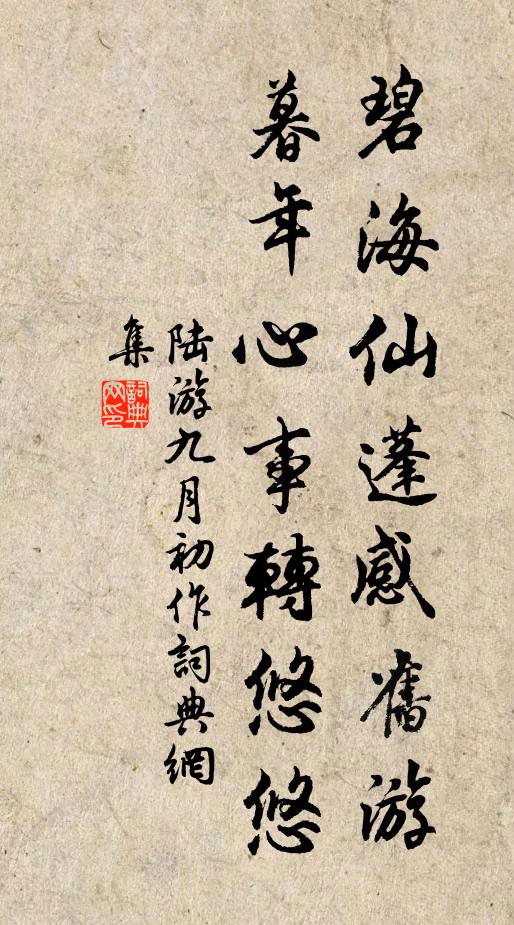 碧海仙蓬感舊游
暮年心事轉悠悠
陆游九月初作詞典網
集
詞典
网印